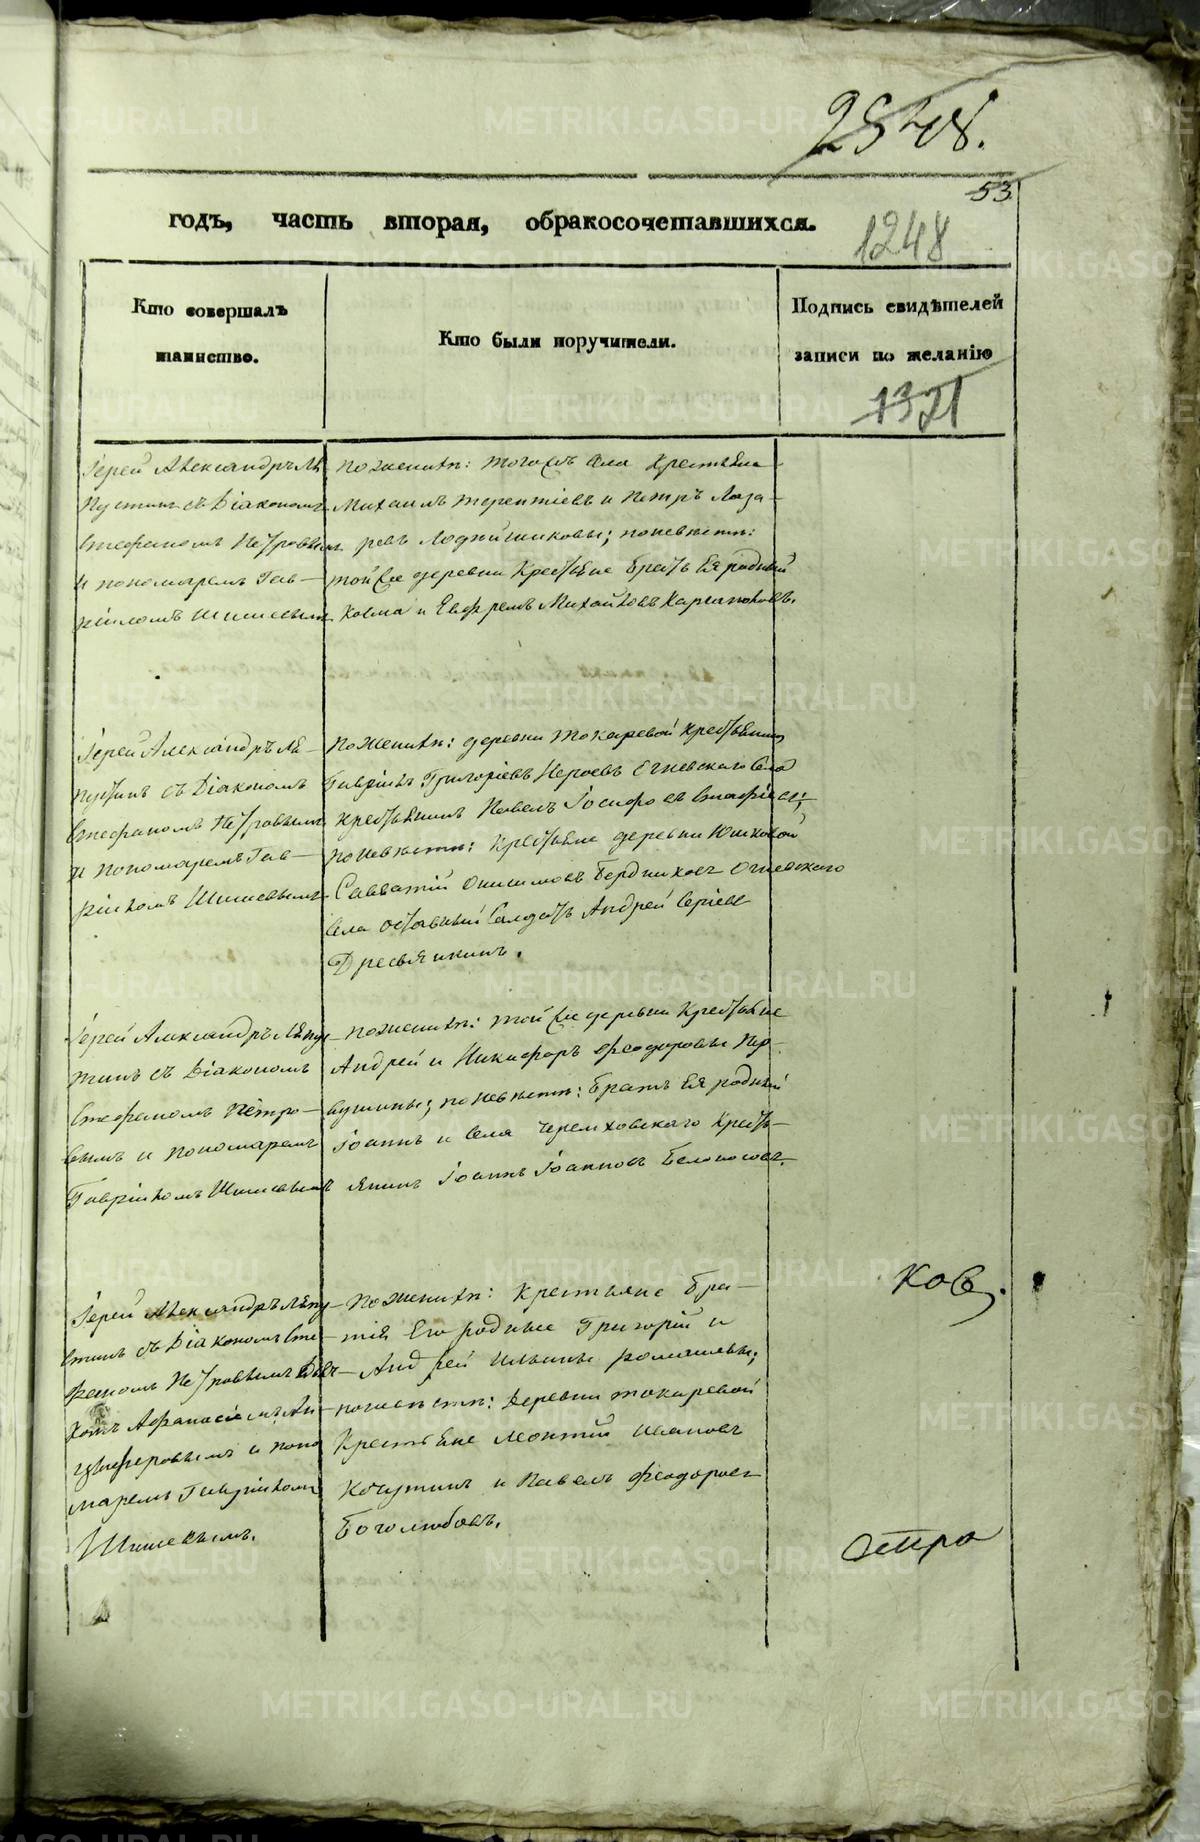 2548.
53
годъ, часть вторая, обракосочетавшихся.
1248
Кто совершалъ
таинство.
Кто были поручители.
Подпись свидѣтелей
записи по желанію
1321
Іерей Александръ Лѣ
пустинъ съ Діакономъ
Стефаномъ Петровымъ
и пономаремъ Гав-
рііломъ Шишевымъ
по женихѣ: тогоже села Крестьяне
Михаилъ Терентіевъ и Петръ Лаза-
ревъ ; по невѣстѣ:
тойже деревни Крестьяне братъ Ея родный
Косма и Ефремъ Михайловъ
Іерей Александръ Лѣ-
пустинъ съ Діакономъ
Стефаномъ Петровымъ
и пономаремъ Гав-
ріиломъ Шишевымъ
по женихѣ: деревни Токаревой Крестьянинъ
Гавріилъ Григоріевъ Огневскаго Села
Крестьянинъ Павелъ Іосифовъ
по невѣстѣ: Крестьяне деревни Юшковой
Савватій Онисимовъ Бердниковъ Огневского
села отставный Салдатъ Андрей Сергіевъ
Дресвянкинъ.
Іерей Александръ Лѣпу-
тинъ съ Діакономъ
Стефаномъ Петро-
вымъ и пономаремъ
Гавріиломъ Шишевымъ
по женихѣ: тойже деревни Крестьяне
Андрей и Никифоръ Феодоровы Пер-
вушины; по невѣстѣ: братъ Ея родный
Іоаннъ и Села Черемховского Кресть-
янинъ Іоаннъ Іоанновъ Белоносовъ.
Іерей Александръ Лѣпу-
стинъ съ Діакономъ Сте-
фаномъ Петровымъ
Афанасіемъ Ан-
циферовымъ и поно
маремъ Гавріиломъ
Шишевымъ.
по женихѣ: крестьяне бра-
тія Его родные Григорій и
Андрей Ильины ромашевы;
по невѣстѣ: деревни токаревой
Крестьяне Леонтій Ивановъ
Кочутинъ и Павелъ Феодоровъ
Боголюбовъ.
Ков